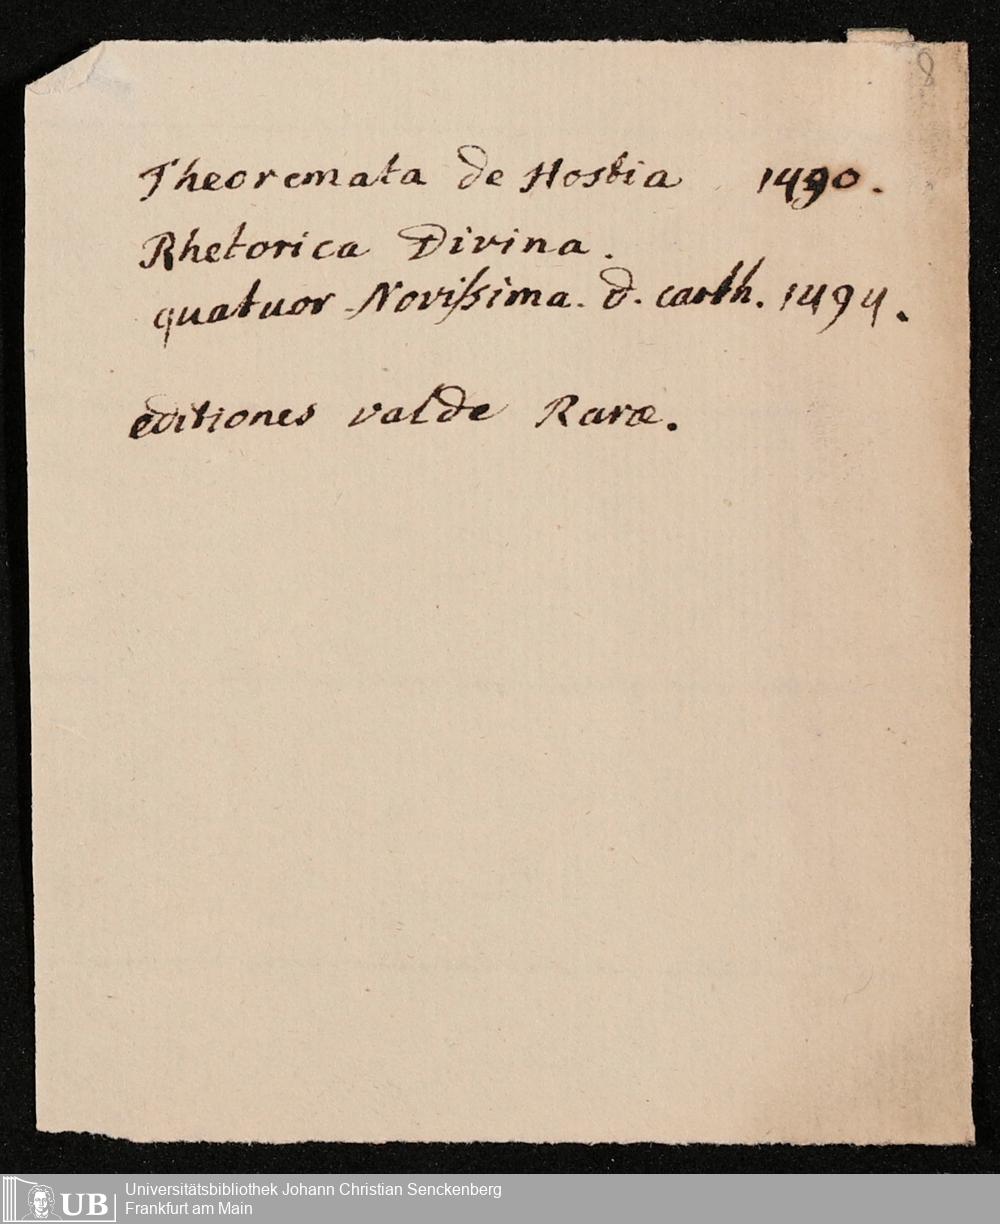 8
Theoremata de Hostia 1490.
Rhetorica Divina.
quatuor Novissima. d. carth. 1494.
editiones valde Raræ.
UB Universitätsbibliothek Johann Christian Senckenberg
Frankfurt am Main